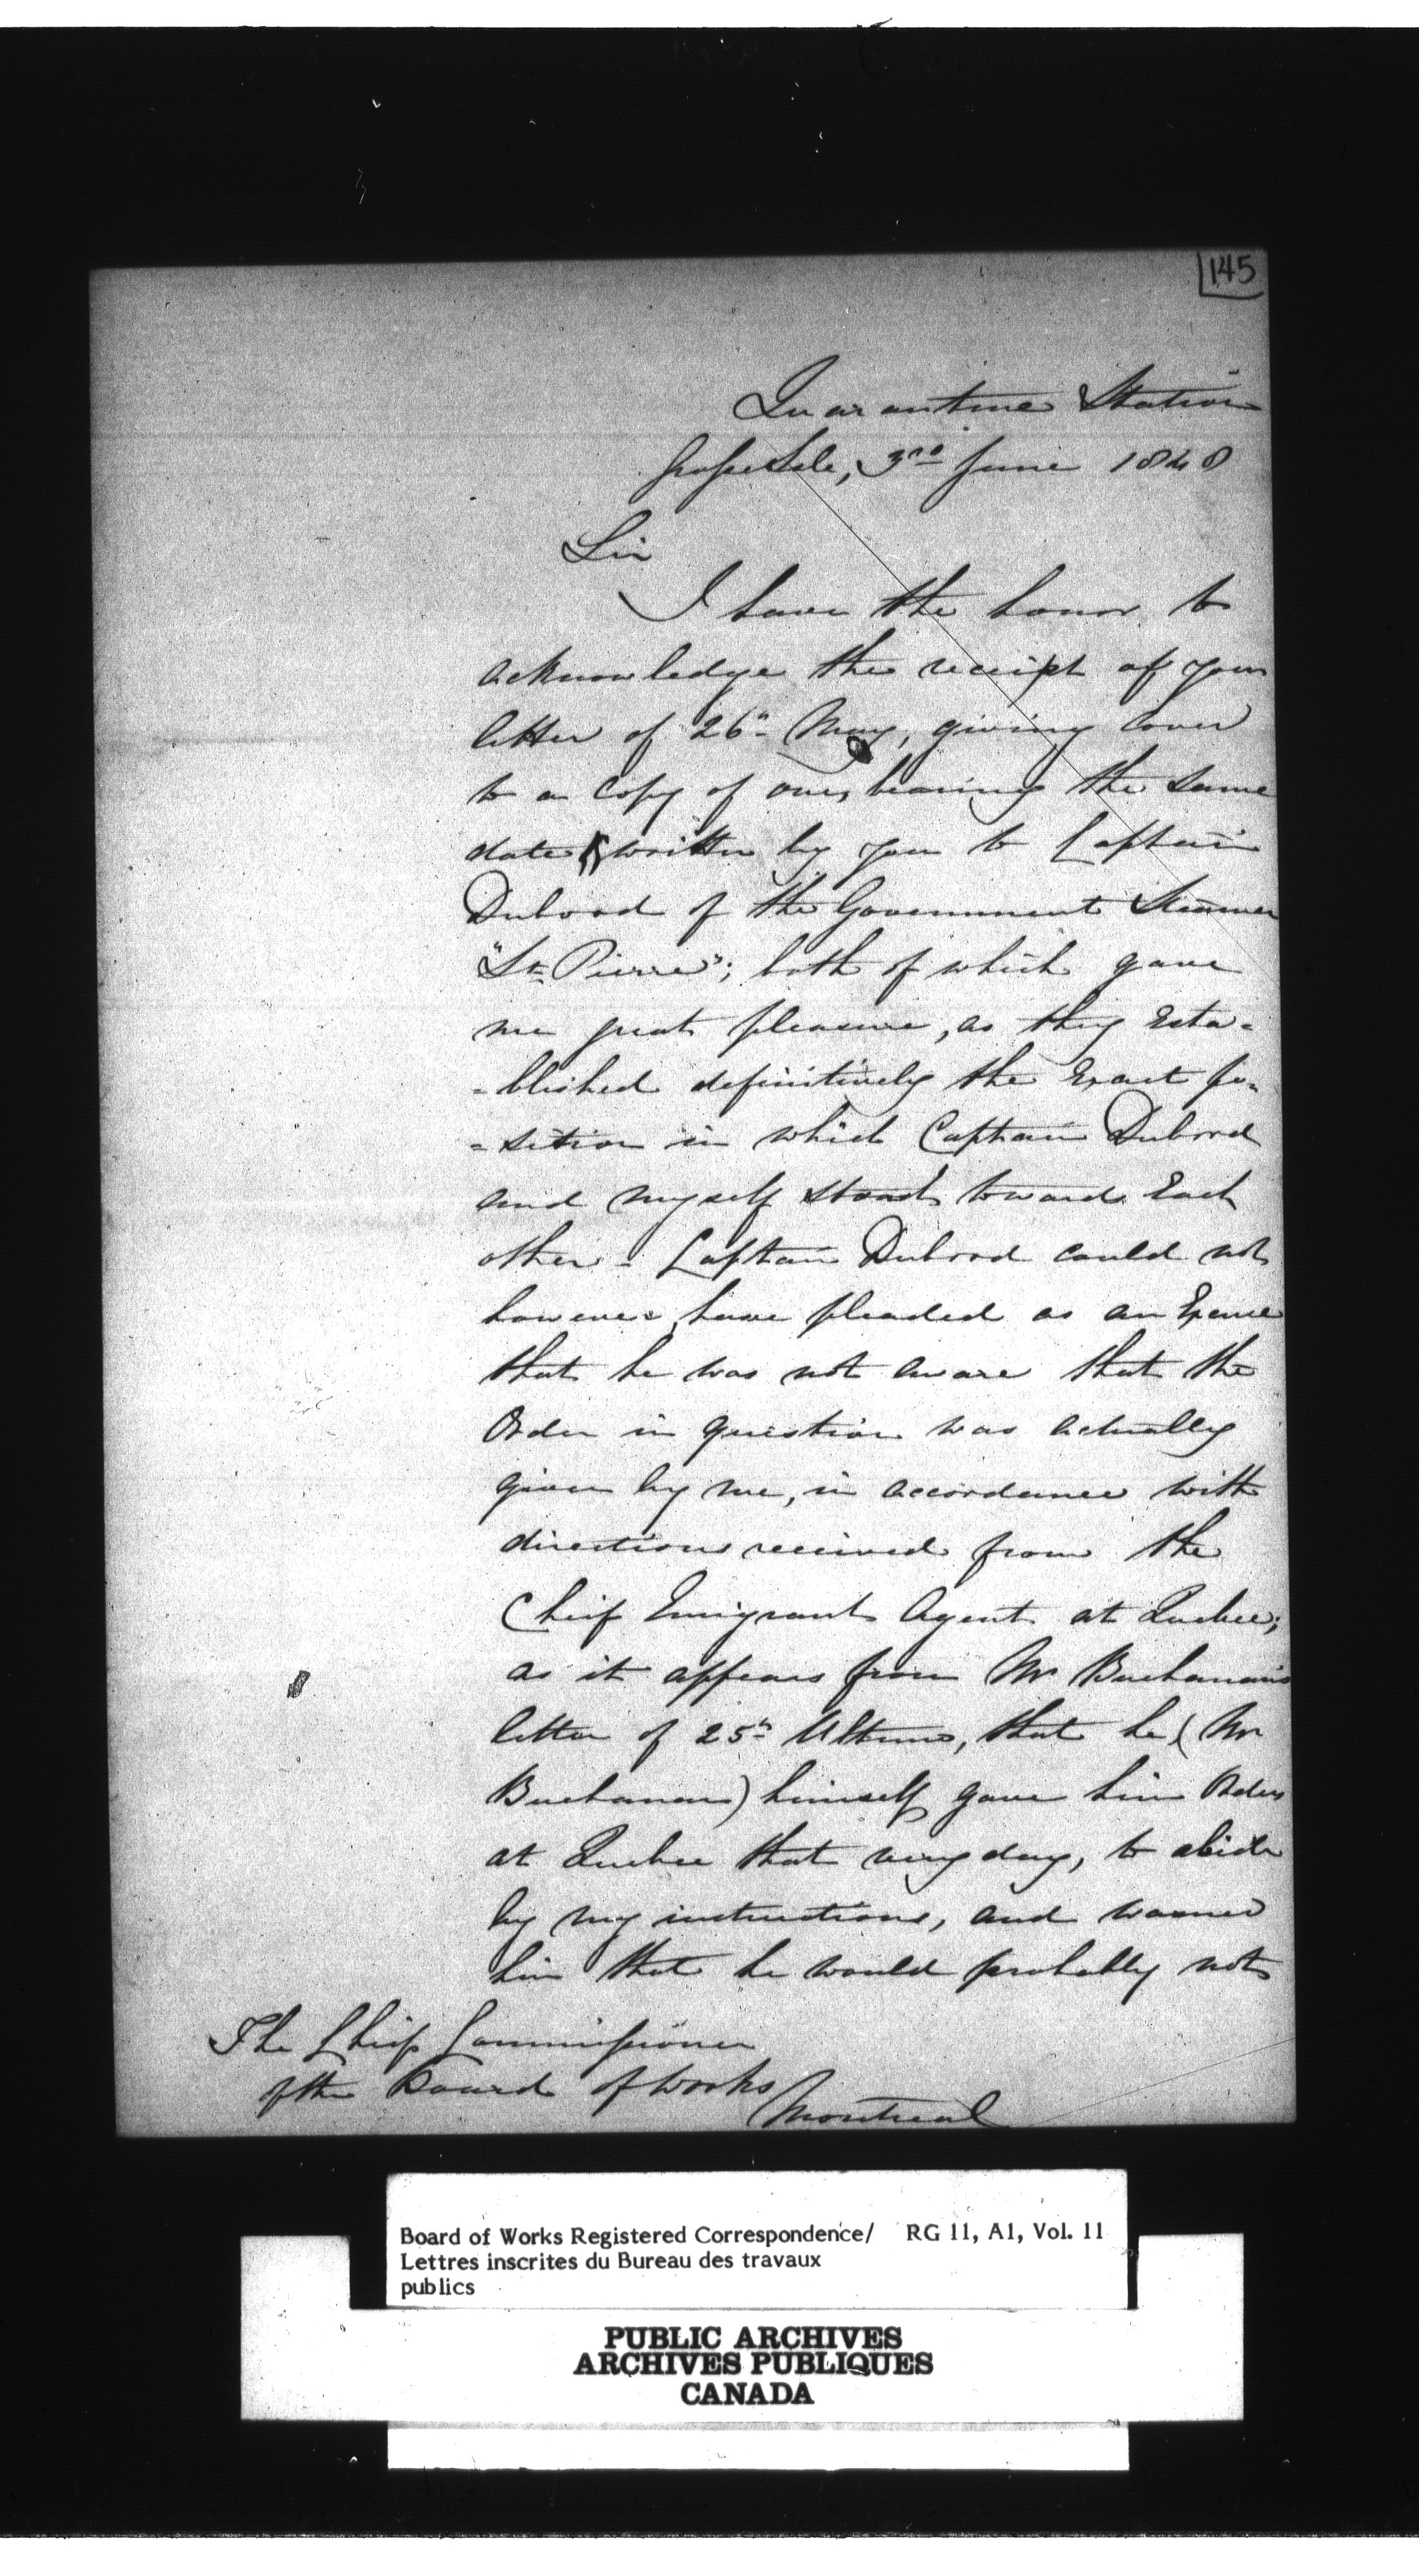 145
Quarantine Station
Grosse Isle, 3rd June 1848
Sir
I have the honor to
acknowledge the receipt of your
letter of 26th May, giving cover
to a copy of one, bearing the same
date, written by you to Captain
Dubord of the Government Steamer
"St. Pierre"; both of which gave
me great pleasure, as they esta-
-blished definitively the exact po-
-sition in which Captain Dubord
and myself stand toward each
other - Captain Dubord could not
however have pleaded as an excuse
that he was not aware that the
Order in question was actually
given by me, in accordance with
directions received from the
Chief Emigrant Agent at Quebec;
as it appears from Mr Buchanan's
letter of 25th Ultimo, that he (Mr
Buchanan) himself gave him Orders
at Quebec that very day, to abide
by my instructions, and warned
him that he would probably not
The Chief Commissioner
of the Board of Works
Montreal
Board of Works Registered Correspondence/ RG 11, A1, Vol. 11
Lettres inscrites du Bureau des travaux
publics
PUBLIC ARCHIVES
ARCHIVES PUBLIQUES
CANADA